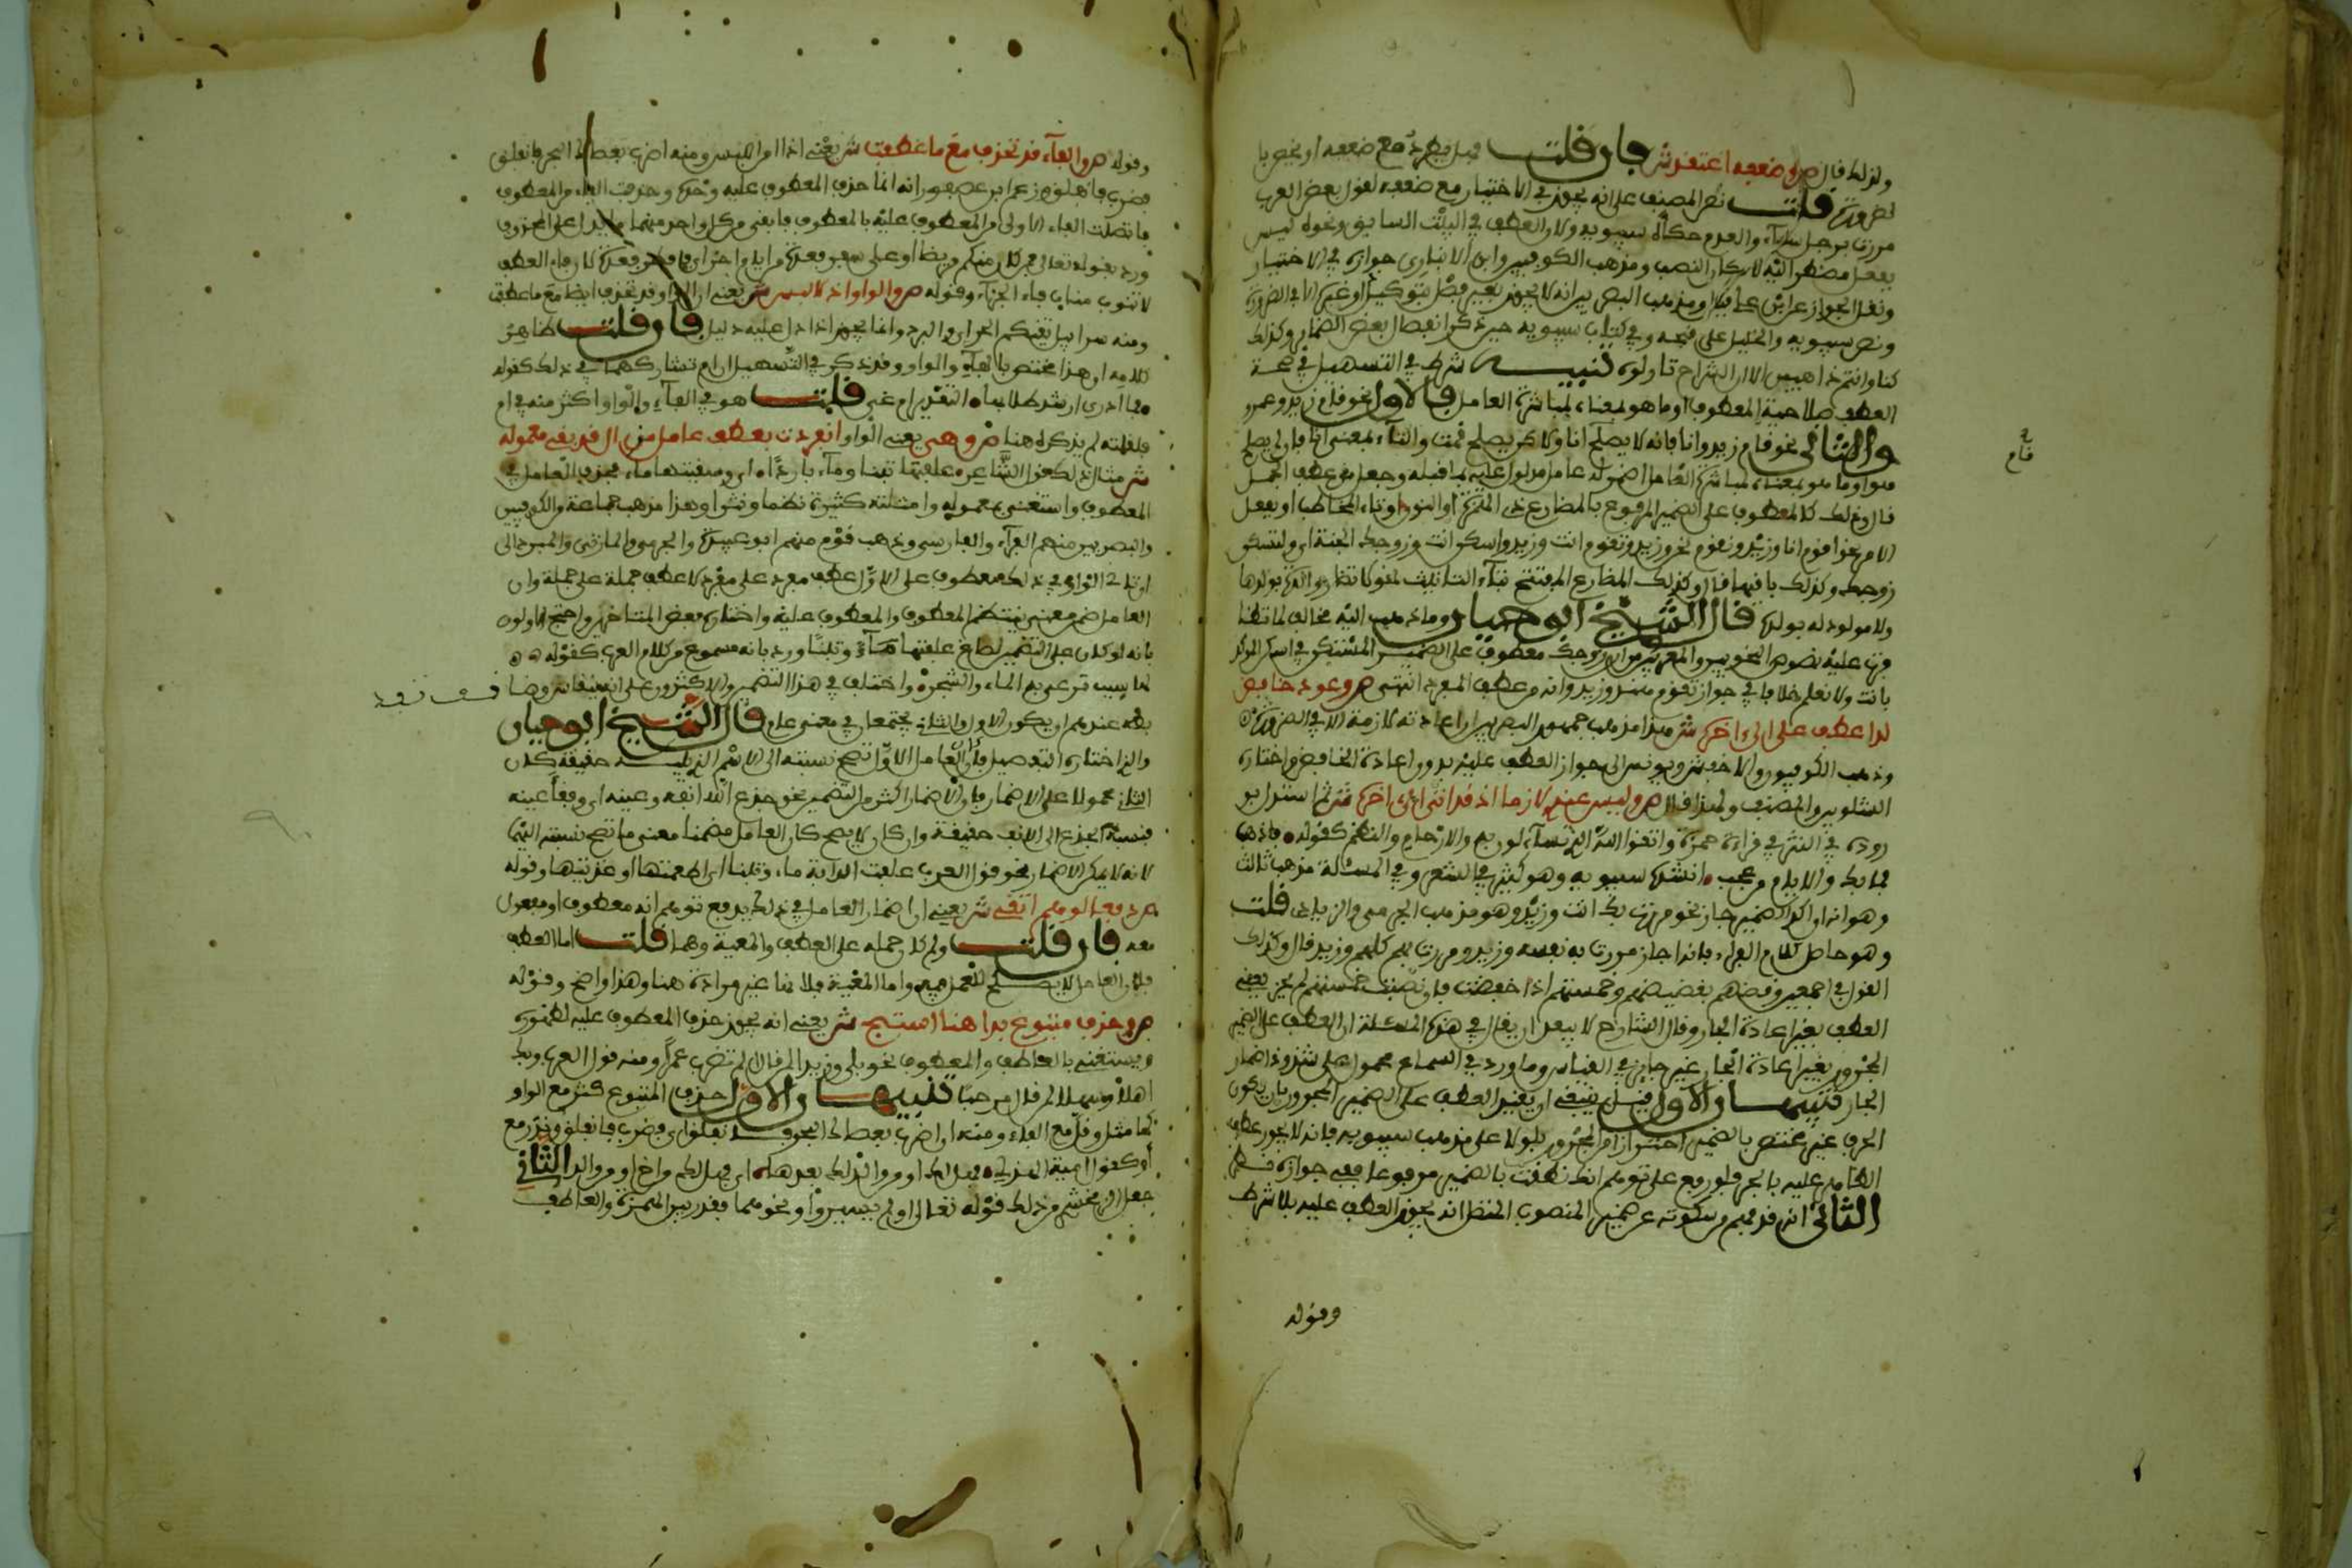 ولذلك قال ص وضعفه اعتقد ش فان قلت فهل يطرد مع ضعفه او يختص بال
لضرورة قلت نص المصنف على انه يجوز في الاختيار مع ضعفه لقول بعض العرب
مررت برجل سواء والعدم حكاه سيبويه ولان العطف في البيت السابق ونحوه ليس
بفعل مضطر اليه لامكان النصب ومذهب الكوفيين وابن الانباري جوازه في الاختيار
ونقل الجواز عن ابي علي ومذهب البصريين انه لا يجوز بغير فصل بتوكيد او غيره الا في الضرورة
ونص سيبويه والخليل على قبحه وفي كتاب سيبويه حين ذكر انفصال بعض الضمائر وكذلك
كنا وانتم ذاهبين الا ان الشراح تاولوه تنبيه شرط في التسهيل في صحة
العطف صلاحية المعطوف او ما هو بمعناه لمباشرة العامل فالاول نحو قام زيد وعمرو
والثاني نحو قام زيد وانا فانه لا يصلح قام انا ولكن يصلح قمت والتاء بمعنى انا فان لم يصلح
هو او ما هو بمعناه لمباشرة العامل اضمر له عامل مدلول عليه بما قبله وجعل من عطف الجمل
قال وذلك كالمعطوف على الضمير المرفوع بالمضارع ذي الهمزة او النون او تاء المخاطب او بفعل
الامر نحو اقوم انا وزيد ونقوم نحن وزيد وتقوم انت وزيد واسكن انت وزوجك الجنة اي ولتسكن
زوجك وكذلك باقيها قال وكذلك المضارع المفتتح بتاء التانيث نحو لا تضار والدة بولدها
ولا مولود له بولده قال الشيخ ابو حيان وما ذهب اليه مخالف لما تظا
فرت عليه نصوص النحويين والمعربين من ان زوجك معطوف على الضمير المستكن في اسكن المؤكد
بانت ولا نعلم خلافا في جواز تقوم هند وزيد وانه من عطف المفرد انتهى ص وعود خافض
لدا عطف على ضمير ش هذا مذهب جمهور البصريين ان اعادته لازمة الا في الضرورة
وذهب الكوفيون والاخفش ويونس الى جواز العطف عليه بدون اعادة الخافض واختاره
الشلوبين والمصنف ولهذا قال ص وليس عندي لازما اذ قد اتى ش ثم استدل بو
روده في النثر في قراءة حمزة واتقوا الله الذي تساءلون به والارحام والنظم كقوله فاذهب
فما بك والايام من عجب انشده سيبويه وهو كثير في الشعر وفي المسئلة مذهب ثالث
وهو انه ان اكد الضمير جاز نحو مررت بك انت وزيد وهو مذهب الجرمي والزيادي قلت
وهو حاصل كلام الفراء فانه اجاز مررت به نفسه وزيد ومررت بهم كلهم وزيد قال وكذلك
القول في اجمعين وقضهم بقضيضهم وخمستهم اذا خفضت فان نصبت خمستهم لم يجز يعني
العطف بغير اعادة الجار وقال الشارح لا يبعد ان يقال في هذه المسئلة ان العطف على الضمير
المجرور بغير اعادة الجار غير جائز في القياس وما ورد في السماع محمول على شذوذ اضمار
الجار تنبيهان الاول قيل ينبغي ان يقيد العطف على الضمير المجرور بان يكون
الحرف غير مختص بالضمير احترازا من المجرور بلولا على مذهب سيبويه فانه لا يجوز عطف
الظاهر عليه بالجر فلو رفع على توهم انك نطقت بالضمير مرفوعا ففي جوازه نظر
الثاني انه قد فهم من سكوته عن ضمير النصب المتصل انه يجوز العطف عليه بلا شرط
وقوله
قام
وقوله ص والفاء قد تحذف مع ما عطفت ش يعني اذا امن اللبس ومنه اضرب بعصاك البحر فانفلق
فضرب فانفلق وزعم ابن عصفور انه انما حذف المعطوف عليه وحده وحذفت الفاء من المعطوف
فاتصلت الفاء الاولى من المعطوف عليه بالمعطوف فابقي من كل واحد منهما ما يدل على المحذوف
ورد بقوله تعالى فمن كان منكم مريضا او على سفر فعدة من ايام اخر اي فافطر فعدة لان فاء العطف
لا تنوب مناب فاء الجزاء وقوله ص والواو اذ لا لبس ش يعني ان الواو قد تحذف ايضا مع ما عطفت
ومنه سرابيل تقيكم الحر اي والبرد وانما يجوز اذا دل عليه دليل فان قلت ظاهر
كلامه ان هذا مختص بالفاء والواو وقد ذكر في التسهيل ان ام تشاركهما في ذلك كقوله
فما ادري ارشد طلابها التقدير ام غي قلت هو في الفاء والواو اكثر منه في ام
فلقلته لم يذكره هنا ص وهي يعني الواو انفردت بعطف عامل مزال قد بقي معموله
ش مثال ذلك قول الشاعر علفتها تبنا وماء باردا اي وسقيتها ماء فحذف العامل في
المعطوف واستغنى بمعموله وامثلته كثيرة نظما ونثرا وهذا مذهب جماعة من الكوفيين
والبصريين منهم الفراء والفارسي وذهب قوم منهم ابو عبيدة والجرمي والمازني والمبرد الى
ان تالي الواو في ذلك معطوف على الاول عطف مفرد على مفرد لا عطف جملة على جملة وان
العامل ضمن معنى ينتظم المعطوف والمعطوف عليه واختاره بعض المتاخرين واحتج الاولون
بانه لو كان على التضمين لساغ علفتها ماء وتبنا ورد بانه مسموع من كلام العرب كقوله
لها سبب ترعى به الماء والشجر واختلف في هذا التضمين والاكثرون على انه ينقاس وضا
بطه عندهم ان يكون الاول والثاني يجتمعان في معنى عام قال الشيخ ابو حيان
والذي اختاره التفصيل فان كان العامل الاول تصح نسبته الى الاسم الذي يليه حقيقة كان
الثاني محمولا على الاضمار لان الاضمار اكثر من التضمين نحو جدع الله انفه وعينه اي وفقأ عينه
فنسبة الجدع الى الانف حقيقة وان كان لا يصح كان العامل مضمنا معنى ما تصح نسبته اليهما
لانه لا يمكن الاضمار نحو قول العرب علفت الدابة ماء وتبنا اي اطعمتها او غذيتها وقوله
ص دفعا لوهم اتقي ش يعني ان اضمار العامل في ذلك يدفع توهم انه معطوف او مفعول
معه فان قلت ولم لا جمله على العطف والمعية وهما قلت اما العطف
فلان العامل لا يصلح للعمل فيه واما المعية فلانها غير مرادة هنا وهذا واضح وقوله
ص وحذف متبوع بدا هنا استبح ش يعني انه يجوز حذف المعطوف عليه لظهوره
ويستغنى بالعاطف والمعطوف نحو بلى وزيدا لمن قال الم تضرب عمرا ومنه قول العرب وبك
اهلا وسهلا لمن قال مرحبا تنبيهان الاول حذف المتبوع كثر مع الواو
كما مثل وقل مع الفاء ومنه ان اضرب بعصاك البحر فانفلق اي فضرب فانفلق وندر مع
أو كقول امية الهذلي فهل لك او من والد لك بعدها اي فهل لك من اخ او من والد الثاني
جعل الزمخشري من ذلك قوله تعالى اولم يسيروا ونحوهما فقدر بين الهمزة والعاطف